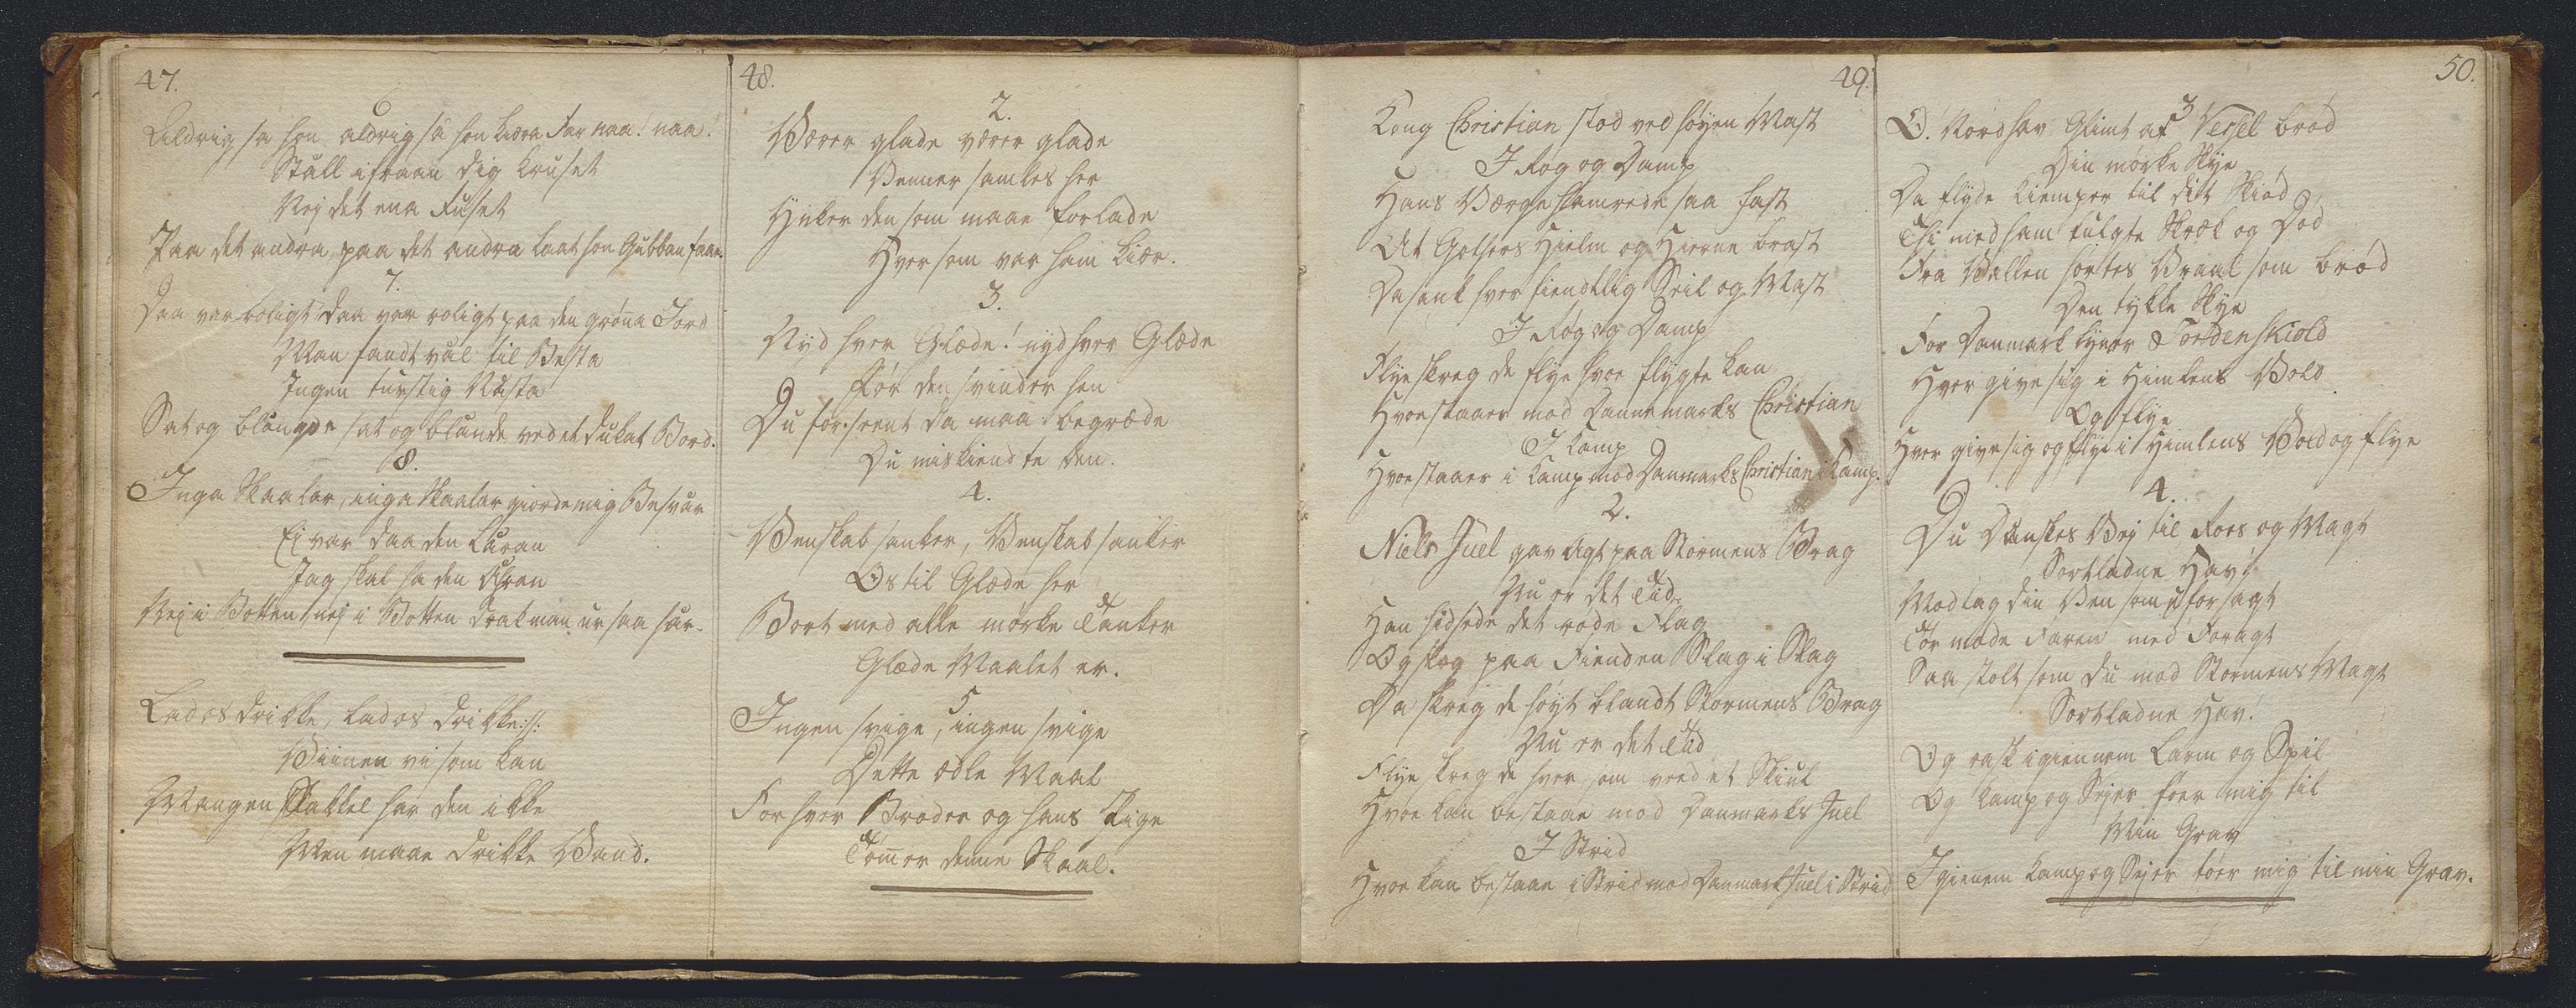 47.
6
Aldrig sa hon aldrig sa hon kiæra Far naa! naa!
Ställ ifraan dig Kruset
Nej det ena Fuset
Paa det andra, paa det andra laat hon Gubban faae.
7.
Daa var roligt daa var roligt paa den gröna Jord
Man fandt väl til Besta
Ingen turstig Nästa
Sat og blängde sat og blände ved et dukat Bord.
8.
Inga Skaalar, inga Skaalar giorde mig Besvär
Ej var daa den Läran
Jag skal ha den Ähran
Nej i Botten nej i Botten drak man ur saa här.
Lad os drikke, lad os drikke :/:
Viinen vi som kan
Mangen Stakkel har den ikke
Men maae drikke Vand.
48.
2.
Værer glade værer glade
Venner samles her
Hyler den som maae forlade
Hver som var ham kiær.
3.
Nyd hver Glæde! nyd hver Glæde
Før den svinder hen
Du for seent da maae begræde
Du miskiendte den.
4.
Venskab sanker, Venskab sanker
Os til Glæde her
Bort med alle mørke Tanker
Glæde Maalet er.
5
Ingen svige, ingen svige
Dette ædle Maal
For hver Broder og hans Pige
Tømer denne Skaal.
49.
Kong Christian stod ved høyen Mast
I Røg og Damp
Hans Værge hamrede saa fast
At Gothers Hielm og Hierne brast
Da sank hver fiendtlig Seil og Mast
I Røg og Damp
Flye skreg de flye hvor flygte kan
Hvo staaer mod Dannemarks Christian
I Kamp
Hvo staaer i Kamp mod Danmarks Christian i Kamp.
2.
Niels Juel gav Agt paa Stormens Brag
Nu er det Tid.
Han hidsede det røde Flag
Og slog paa Fienden Slag i Slag
Da skreg de høyt blandt Stormens Brag
Nu er det Tid
Flye skreg de hver som veed et Skiul
Hvo kan bestaae mod Danmarks Juel
I Strid
Hvo kan bestaae i Strid mod Danmarks Juel i Strid
50.
3
O. Nordhav Glimt af Vessel brød
Din mørke Skye
Da flyde Kiemper til dit Skiød
Thi med ham fulgte Skræk og Død
Fra Vallen hørtes Vraal som brød
Den tykke Skye
For Danmark lyner Tordenskiold
Hver give sig i Himlens Vold
Og flye
Hver give sig og flye i Himlens Vold og flye
4.
Du Danskes Vej til Roes og Magt
Sortladne Hav!
Modtag din Ven som uforsagt
Tør møde Faren med Foragt
Saa stolt som du mod Stormens Magt
Sortladne Hav!
Og rask igiennem Larm og Spil
Og Kamp og Sejer foer mig til
Min Grav
Igienem Kamp og Sejer foer mig til min Grav.